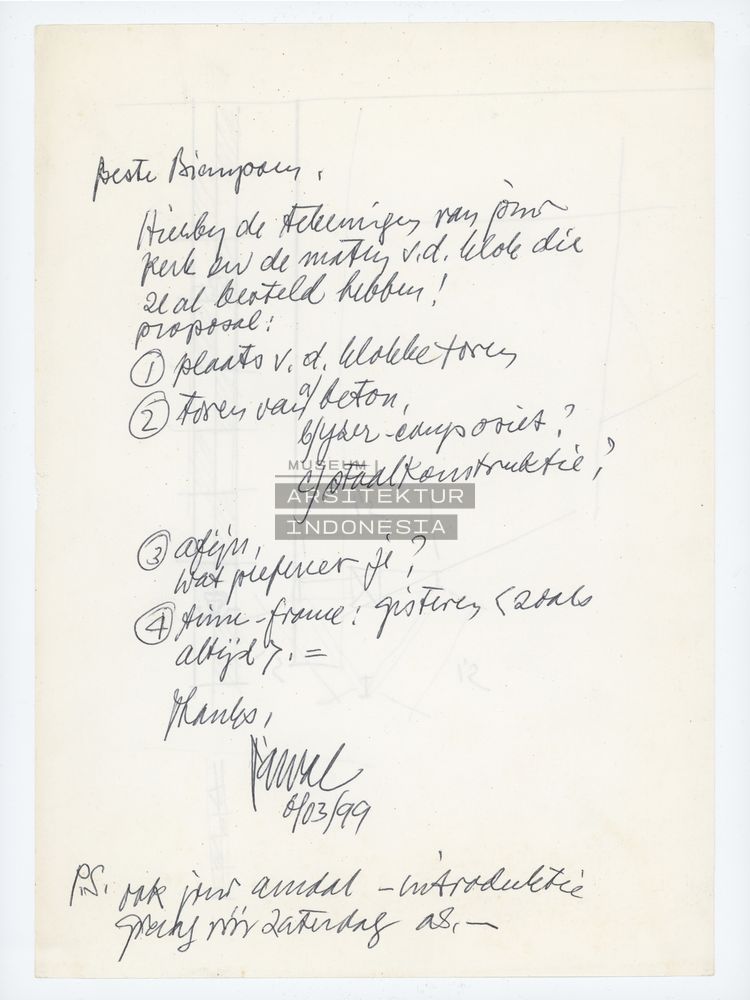 Beste Bianpoen,
Hierbij de tekeningen van jouw
kerk en de maten v.d. klok die
ze al besteld hebben!
proposal:
① plaats v.d. klokketoren
② toren van a/ beton,
b/ fyber-composiet?
c/ staalkonstruktie?
MUSEUM
ARSITEKTUR
INDONESIA
③ afijn,
wat prefereer je?
④ time-frame: gisteren <zoals
altijd>. =
thanks,
/03/99
P.S. ook jouw amdal-introduktie
graag vóór zaterdag as. —